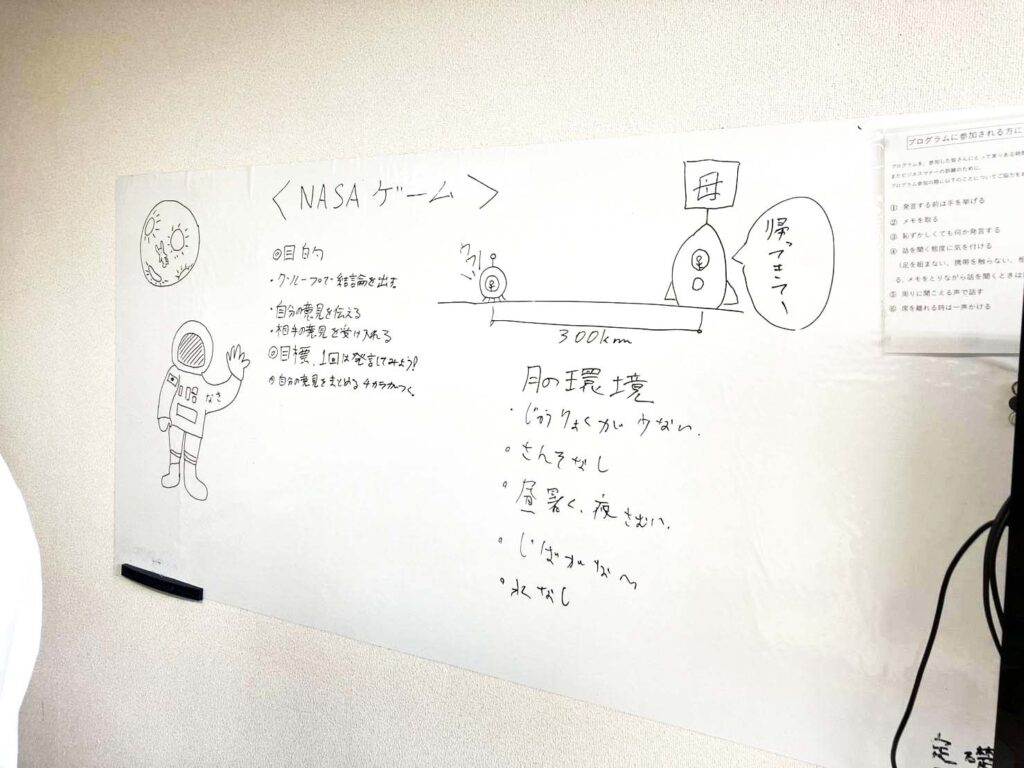 <NASAゲーム>
◎目的
・グループで結論を出す
・自分の意見を伝える
・相手の意見を受け入れる
◎目標、1回は発言してみよう!
◎自分の意見をまとめるチカラがつく。
なさ
母
帰ってきて〜
300km
月の環境
・じゅうりょくが少ない.
・さんそなし
・昼暑く、夜さむい.
・じばがない
・水なし
プログラムに参加される方に
プログラムを、参加した皆さんにとって実りある時間
またビジネスマナーの訓練のために、
プログラム参加の際に以下のことについてご協力をお
① 発言する前は手を挙げる
② メモを取る
③ 恥ずかしくても何か発言する
④ 話を聞く態度に気を付ける
(足を組まない、携帯を触らない、
る、メモをとりながら話を聞くときは
⑤ 周りに聞こえる声で話す
⑥ 席を離れる時は一声かける